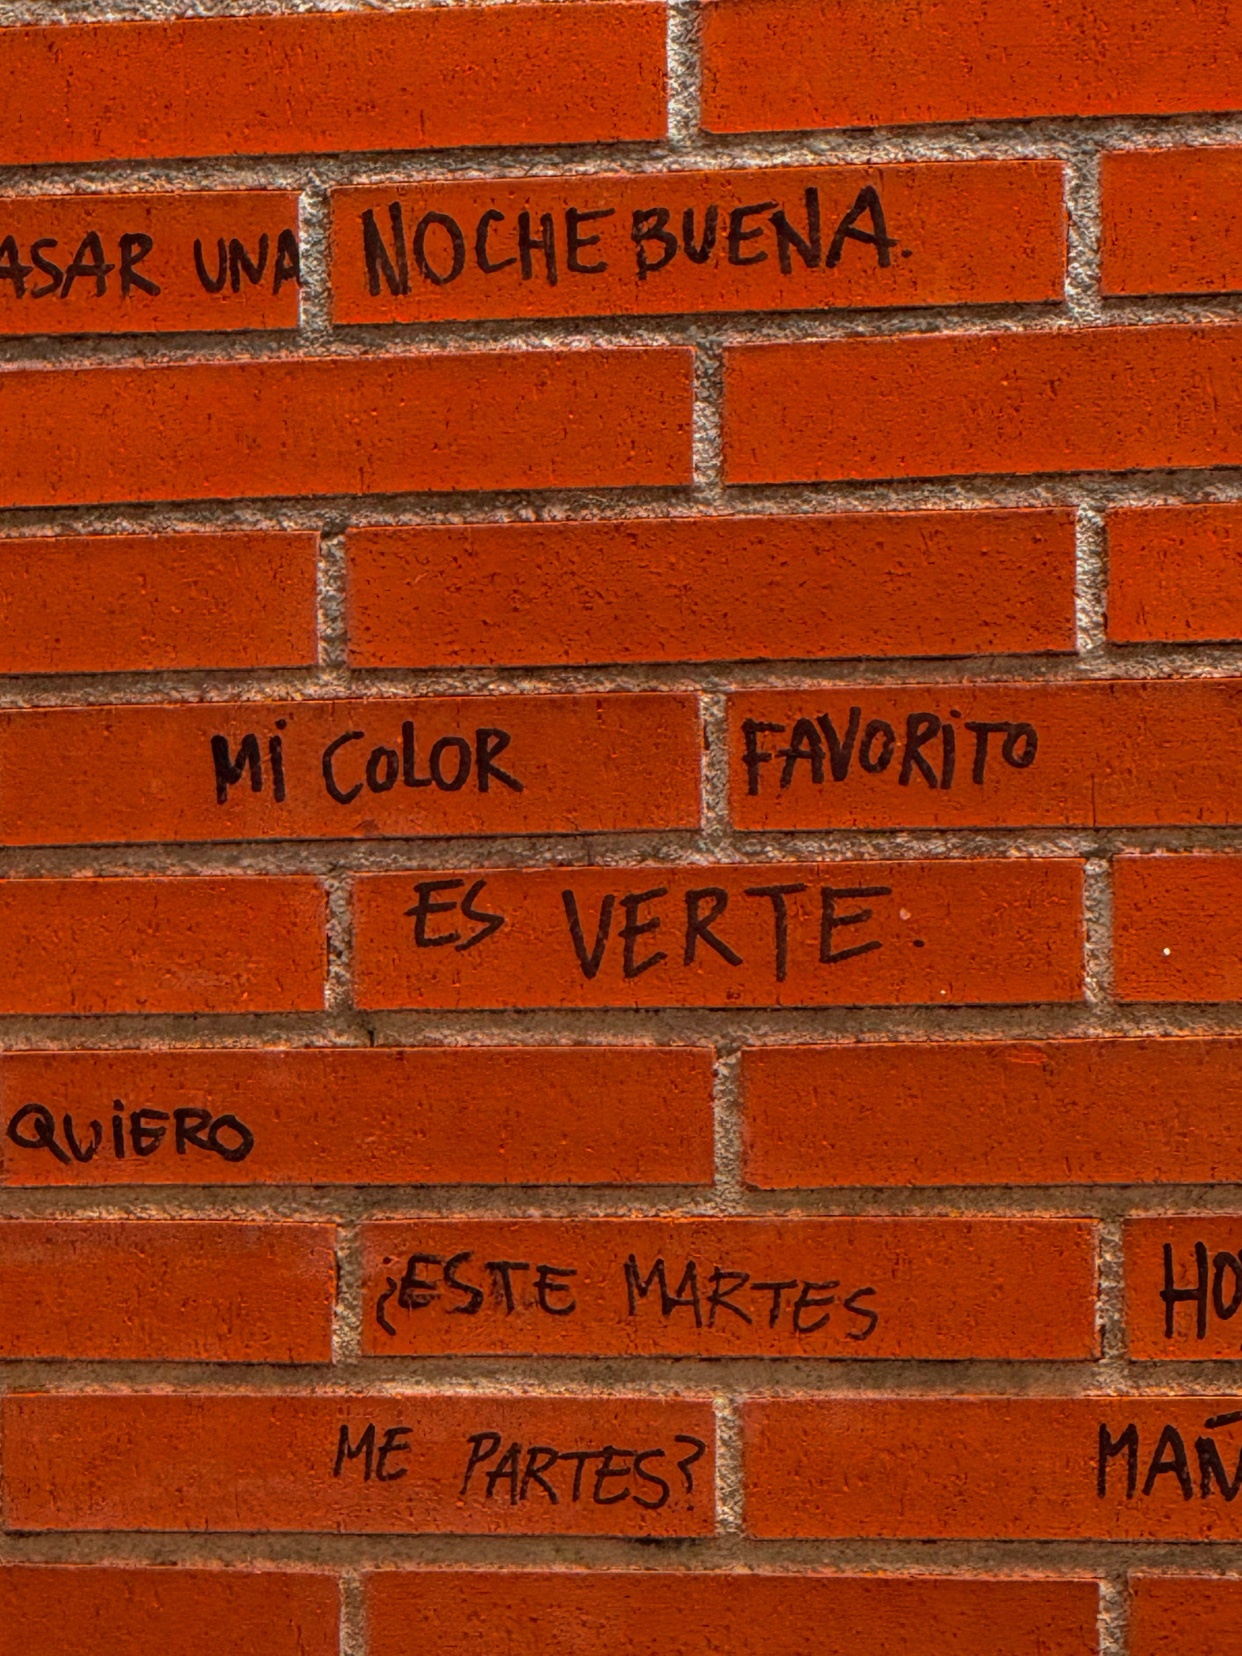 ASAR UNA NOCHE BUENA.
Mi COLOR FAVORiTO
ES VERTE.
QUiERO
¿ESTE MARTES
ME PARTES?
HO
MAÑ